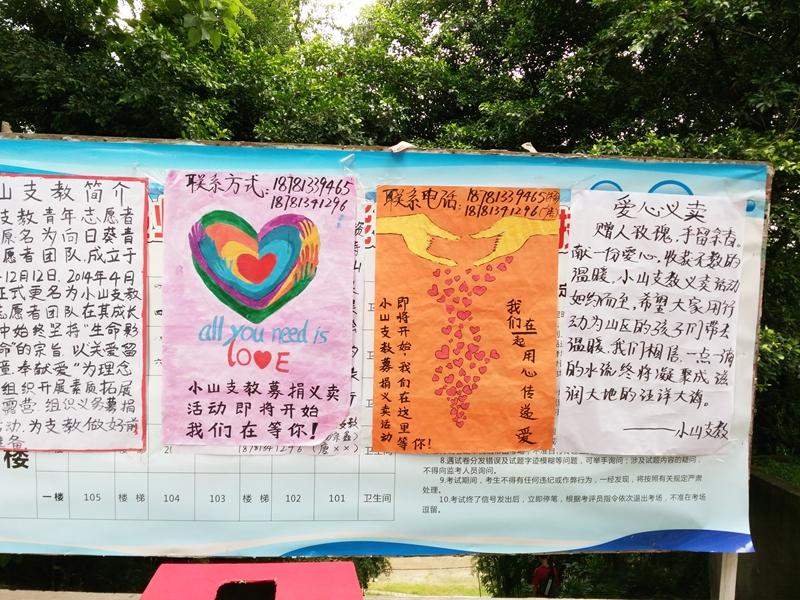 山支教简介
支教青年志愿者
原名为向日葵青
愿者团队,成立于
12月12日.2014年4月
正式更名为小山支教
志愿者团队在其成长
中始终坚持“生命影
命”的宗旨.以关爱留
童,奉献爱”为理念
组织开展素质拓展
露营.组织义务募捐
活动.为支教做好前
准备
联系方式:18781339465
18781341296
all you need is
LOVE
小山支教募捐义卖
活动即将开始
我们在等你!
联系电话:18781339465
18781341296
我们在一起用心传递爱
即将开始,我们在这里等你!
小山支教募捐义卖活动
爱心义卖
赠人玫瑰,手留余香。
献一份爱心,收获无数的
温暖.小山支教义卖活动
如约而至,希望大家用行
动为山区的孩子们带去
温暖.我们相信,一点一滴
的水流终将凝聚成滋
润大地的汪洋大海。
——小山支教
楼
18781341296
卫生间
一楼 105 楼梯 104 103 楼梯 102 101 卫生间
8.遇试卷分发错误及试题字迹模糊等问题,可举手询问;涉及试题内容的疑问,
不得向监考人员询问。
9.考试期间,考生不得有任何违纪或作弊行为,一经发现,将按照有关规定严肃
处理。
10.考试终了信号发出后,立即停笔,根据考评员指令依次退出考场,不准在考场
逗留。